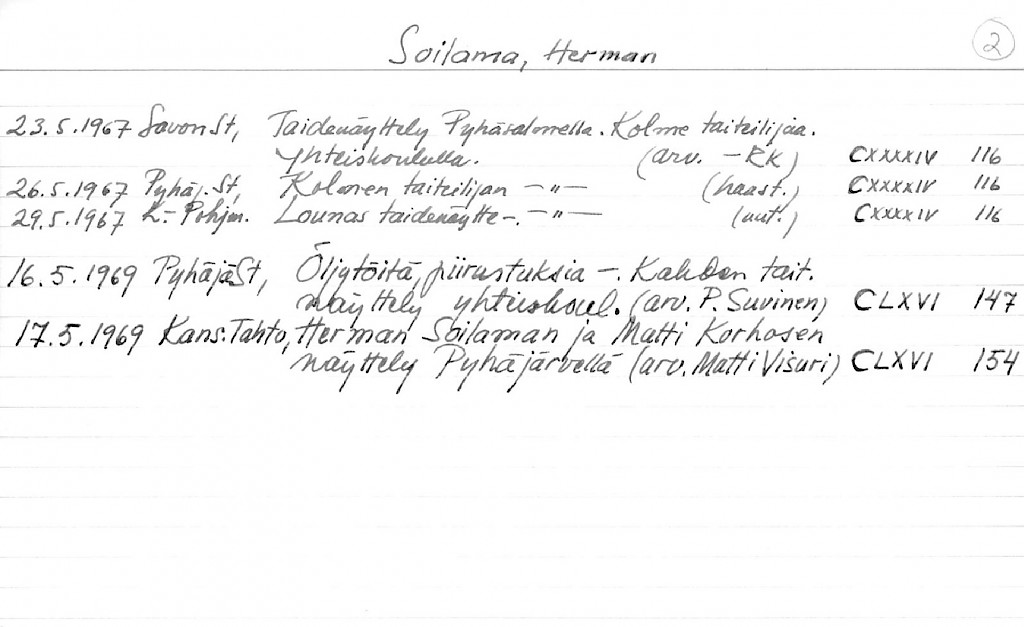 Soilama, Herman
2
23.5.1967 Savon St, Taidenäyttely Pyhäsalmella. Kolme taiteilijaa.
Yhteiskoululla. (arv. – RK) CXXXXIV 116
26.5.1967 Pyhäj. St, Kolmen taiteilijan – " – (haast.) CXXXXIV 116
29.5.1967 K.-Pohjm. Lounas taidenäytte–. – " – (uut.) CXXXXIV 116
16.5.1969 PyhäjäSt, Öljytöitä, piirustuksia –. Kahden tait.
näyttely yhteiskoul. (arv. P. Suvinen) CLXVI 147
17.5.1969 Kans.Tahto, Herman Soilaman ja Matti Korhosen
näyttely Pyhäjärvellä (arv. Matti Visuri) CLXVI 154